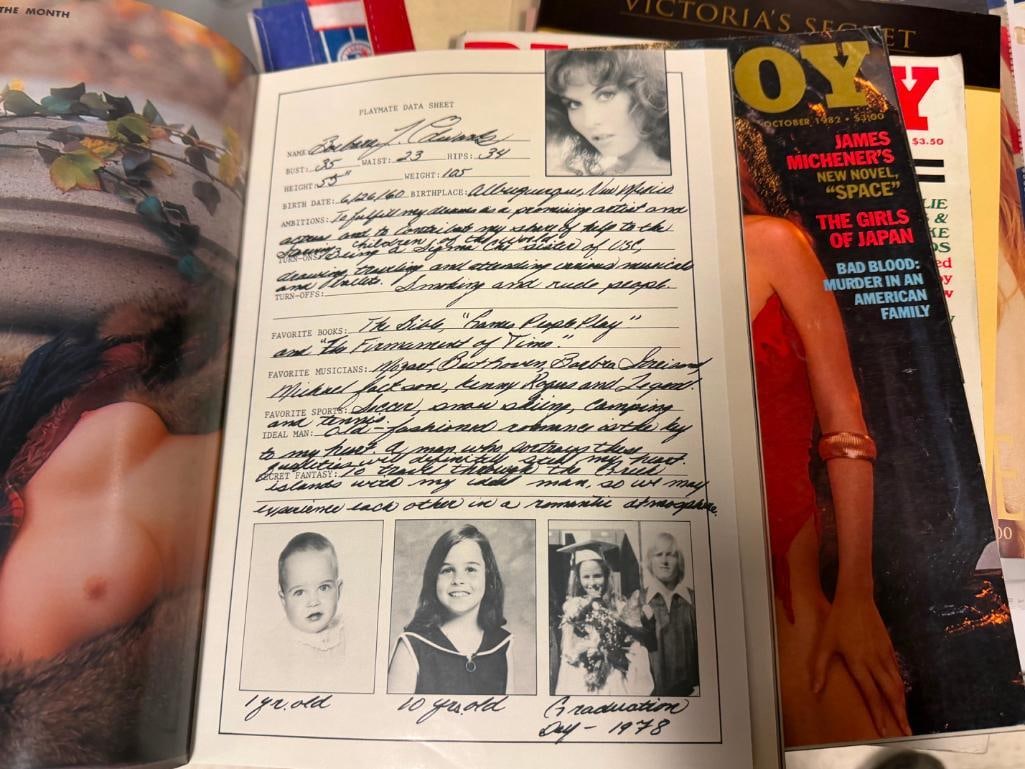 THE MONTH
PLAYMATE DATA SHEET
NAME: Barbara L. Edwards
BUST: 35 WAIST: 23 HIPS: 34
HEIGHT: 5'5" WEIGHT: 105
BIRTH DATE: 6/26/60 BIRTHPLACE: Albuquerque, New Mexico
AMBITIONS: To fulfill my dreams as a promising artist and
actress and to contribute my share of help to the
starving children of the world.
TURN-ONS: Being a Sigma Chi sister of USC,
drawing, traveling and attending various musicals
and ballets.
TURN-OFFS: Smoking and rude people
FAVORITE BOOKS: The Bible, "Games People Play"
and "The Firmament of Time."
FAVORITE MUSICIANS: Mozart, Beethoven, Barbra Streisand
Michael Jackson, Kenny Rogers and Legend.
FAVORITE SPORTS: Soccer, snow skiing, camping
and tennis
IDEAL MAN: Old-fashioned romance is the key
to my heart. A man who portrays these
qualities will definitely steal my heart.
SECRET FANTASY: To travel through the Greek
islands with my ideal man, so we may
experience each other in a romantic atmosphere.
1 yr. old
10 yrs. old
Graduation
Day - 1978
VICTORIA'S SECRET
OY
OCTOBER, 1982 • $3.00
JAMES
MICHENER'S
NEW NOVEL,
"SPACE"
THE GIRLS
OF JAPAN
BAD BLOOD:
MURDER IN AN
AMERICAN
FAMILY
Y
$3.50